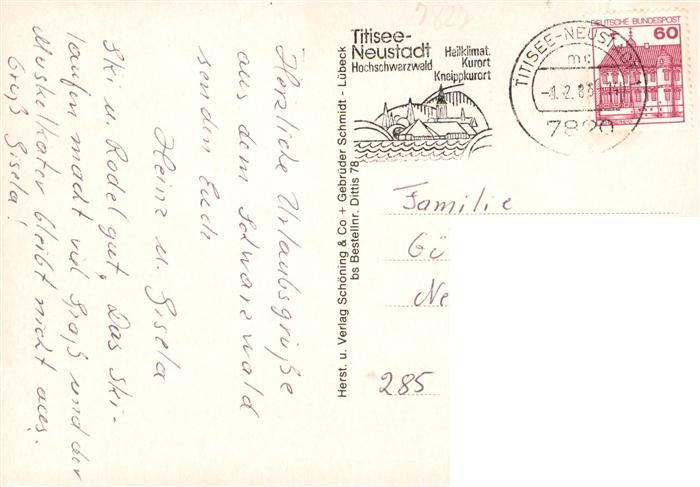 Herzliche Urlaubsgrüße
aus dem Schwarzwald
senden Euch
Heinz u. Gisela
Ski u. Rodel gut, Das Ski-
laufen macht viel Spaß und der
Muskelkater bleibt nicht aus.
Gruß Gisela!
Herst. u. Verlag Schöning & Co + Gebrüder Schmidt - Lübeck
bs Bestellnr. Dittis 78
7822
Titisee-
Neustadt
Hochschwarzwald
Heilklimat.
Kurort
Kneippkurort
TITISEE-NEUSTADT 1
mc
7820
DEUTSCHE BUNDESPOST
60
Familie
Gü
Ne
285